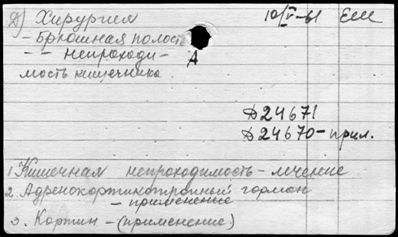 Д) Хирургия 10/V-61 Еш
- Брюшная полость
- " - непроходи-
мость кишечника.
А
Д 24671
Д 24670-прил.
1. Кишечная непроходимость - лечение
2. Адренокортикотропный гормон
- применение
3. Кортин - (применение)